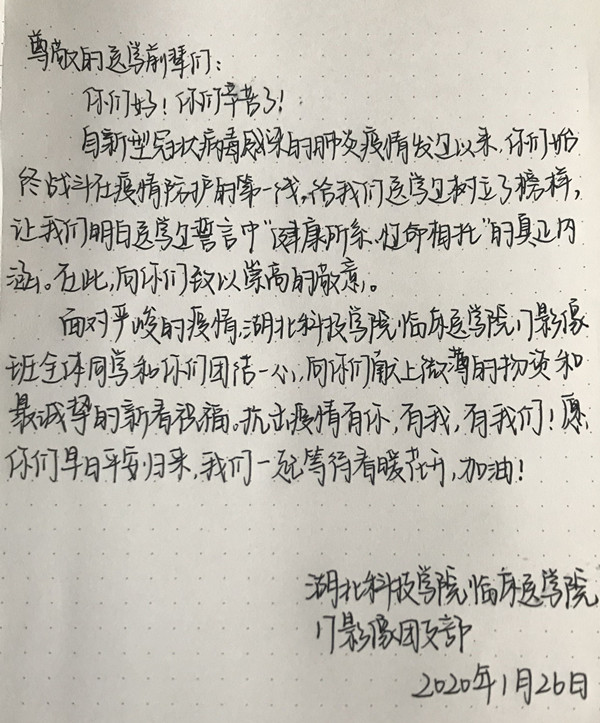 尊敬的医学前辈们：
你们好！你们辛苦了！
自新型冠状病毒感染的肺炎疫情发生以来，你们始
终战斗在疫情防护的第一线，给我们医学生树立了榜样，
让我们明白医学生誓言中“健康所系、性命相托”的真正内
涵。在此，向你们致以崇高的敬意。
面对严峻的疫情，湖北科技学院临床医学院17影像
班全体同学和你们团结一心，向你们献上微薄的物资和
最诚挚的新春祝福。抗击疫情有你，有我，有我们！愿
你们早日平安归来，我们一起等待春暖花开，加油！
湖北科技学院临床医学院
17影像团支部
2020年1月26日